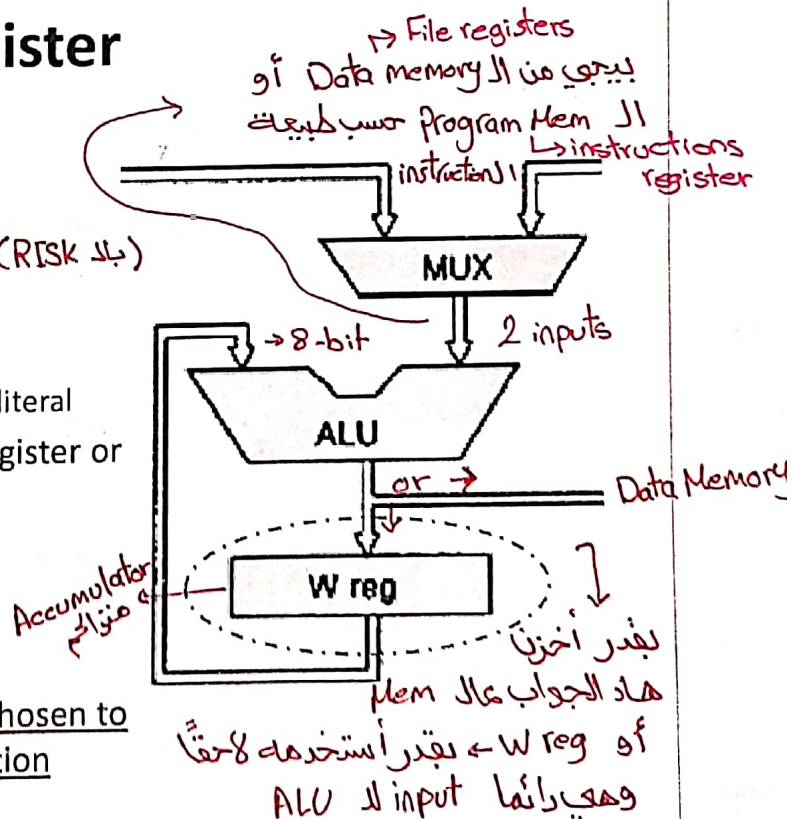 ister
↱ File registers
بيجي من الـ Data memory أو
الـ Program Mem حسب طبيعة
الـ instruction
↳ instructions
register
(بلا RISK)
MUX
→ 8-bit
2 inputs
literal
gister or
ALU
or →
Data Memory
W reg
Accumulator
متراكم
بقدر أخزن
هاد الجواب عالـ Mem
أو W reg ← بقدر أستخدمه لاحقًا
وهي دائما input للـ ALU
hosen to
tion